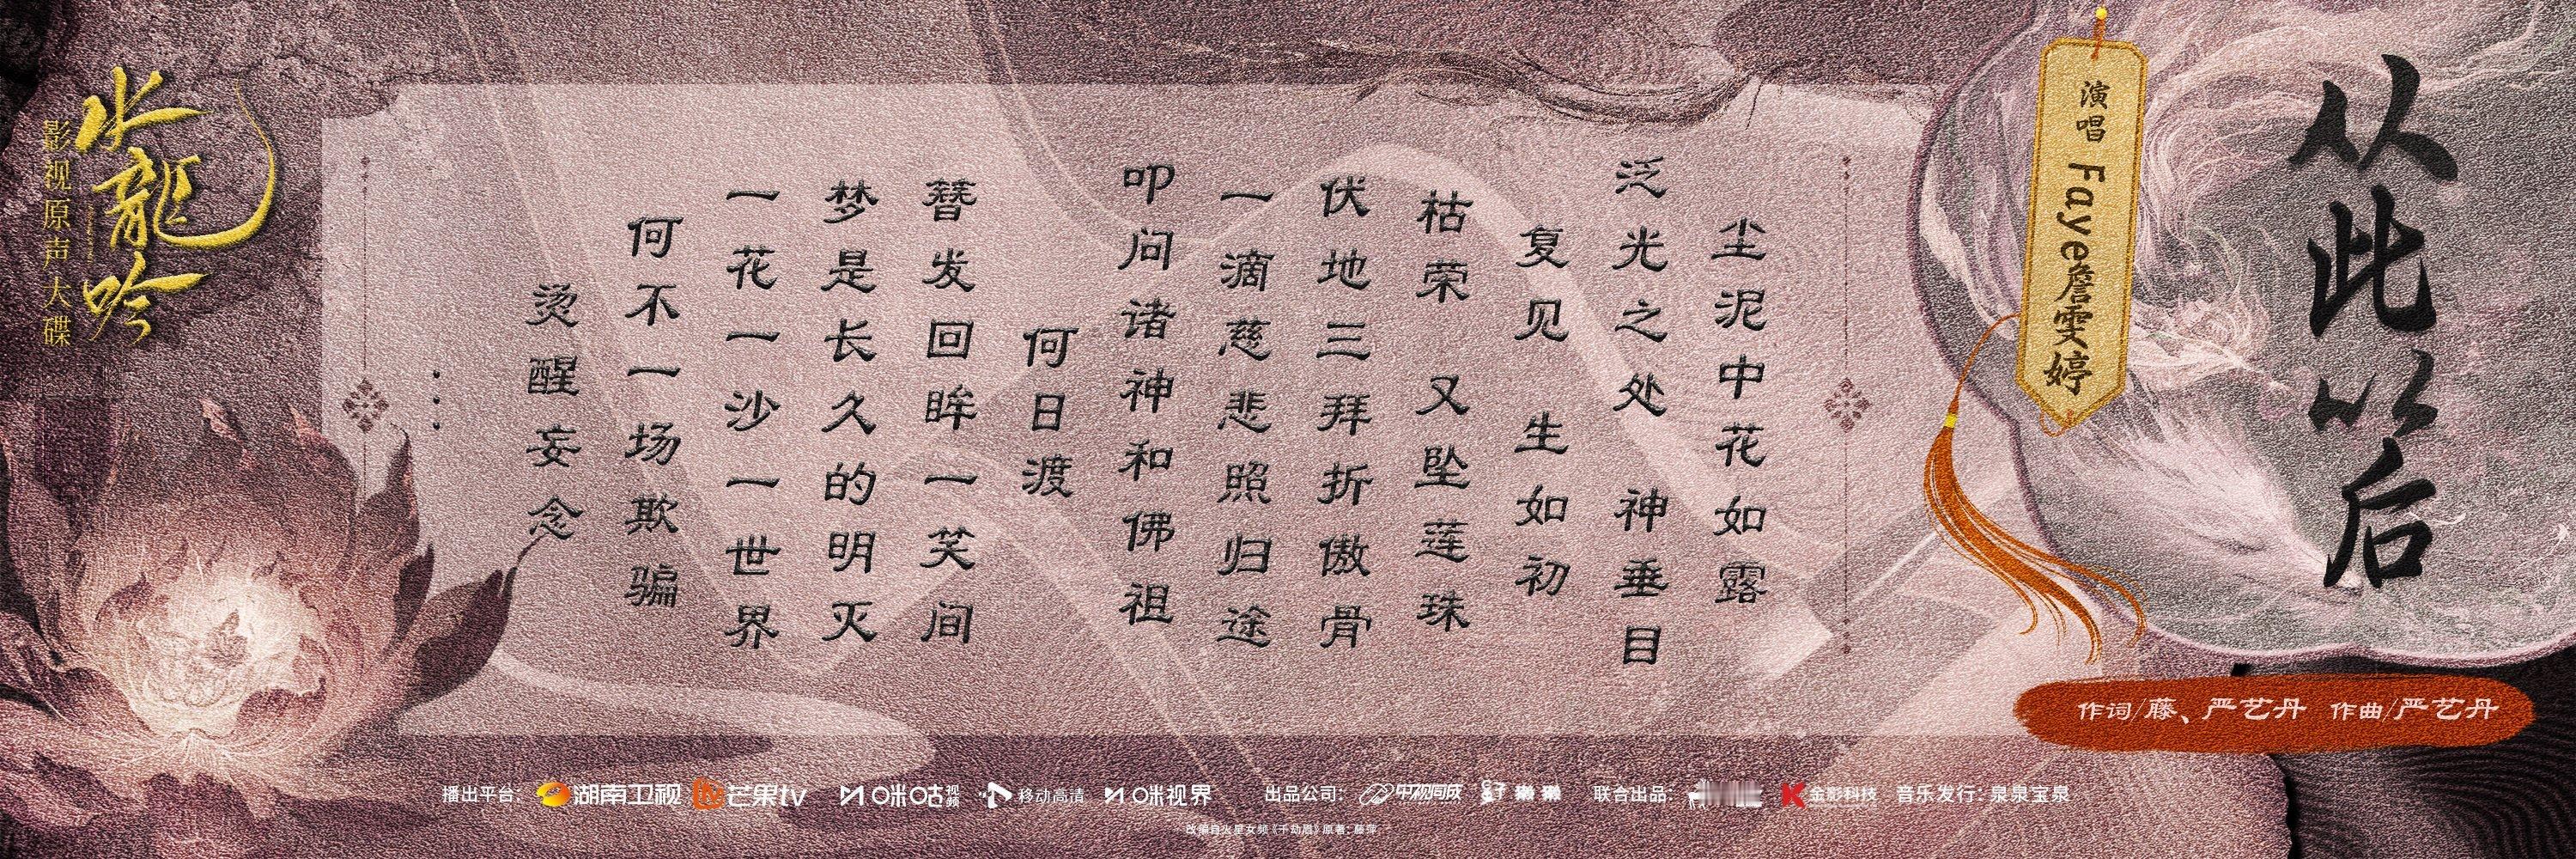 从此以后
演唱 Faye詹雯婷
作词/藤、严艺丹 作曲/严艺丹
尘泥中花如露
泛光之处 神垂目
复见 生如初
枯荣 又坠莲珠
伏地三拜折傲骨
一滴慈悲照归途
叩问诸神和佛祖
何日渡
簪发回眸一笑间
梦是长久的明灭
一花一沙一世界
何不一场欺骗
烫醒妄念
...
水龍吟
影视原声大碟
播出平台: 湖南卫视 芒果tv 咪咕视频 移动高清 咪视界 出品公司: 中视同成 联合出品: 金影科技 音乐发行: 泉泉宝泉
改编自火星女频《千劫眉》原著: 藤萍